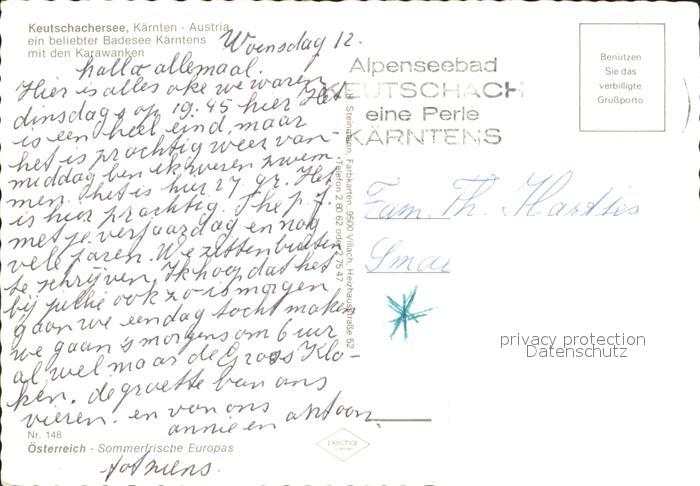 Keutschachersee, Kärnten · Austria
ein beliebter Badesee Kärntens
mit den Karawanken
Woensdag 12.
hallo allemaal.
Hier is alles oke we waren
dinsdag op 19.45 hier Het
is een heel eind, maar
het is prachtig weer van-
middag ben ik weren zwem
men. het is hier 27 gr. Het
is hier prachtig. The p.f.
met je verjaardag en nog
vele jaren. We zitten buiten
te schrijven. Ik hoop dat het
bij jullie ook zo is morgen
gaan we een dag tocht maken
we gaan smorgens om 6 uur
al wel maar de Gross Klo-
ken. de groette van ons
vieren. en van ons
annie en antoon
totziens.
Nr. 148
Österreich - Sommerfrische Europas
Steinmann, Farbkarten, 9500 Villach, Herzhausstraße 52
Telefon 2 60 62 oder 2 75 47
Alpenseebad
KEUTSCHACH
eine Perle
KÄRNTENS
Benützen
Sie das
verbilligte
Grußporto
Fam. Th.
Smal
privacy protection
Datenschutz